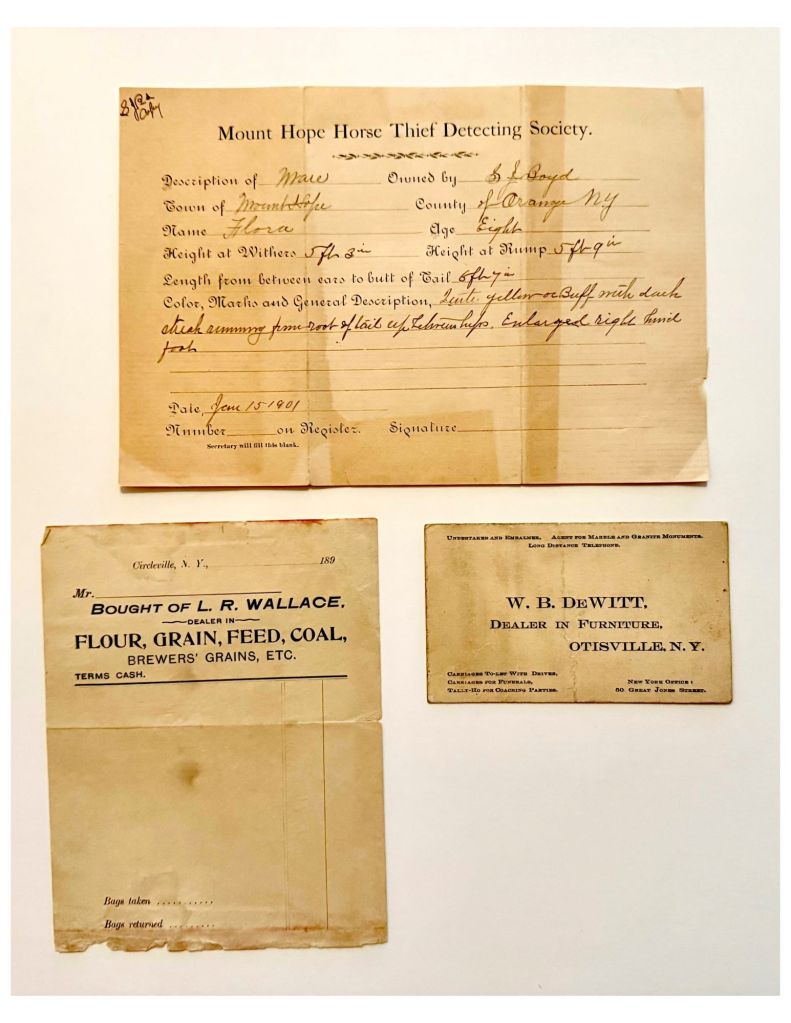 Mount Hope Horse Thief Detecting Society.
Description of Mare Owned by S J Boyd
Town of Mount Hope County of Orange NY
Name Flora Age Eight
Height at Withers 5ft 3in Height at Rump 5ft 9in
Length from between ears to butt of Tail 6ft 7in
Color, Marks and General Description, Quite yellow or Buff with dark
streak running from root of tail up between hips. Enlarged right hind
foot
Date, Jan 15 1901
Number on Register. Signature
Secretary will fill this blank.
Circleville, N. Y., 189
Mr.
BOUGHT OF L. R. WALLACE,
DEALER IN
FLOUR, GRAIN, FEED, COAL,
BREWERS' GRAINS, ETC.
TERMS CASH.
Bags taken ...........
Bags returned .........
UNDERTAKER AND EMBALMER. AGENT FOR MARBLE AND GRANITE MONUMENTS.
LONG DISTANCE TELEPHONE.
W. B. DEWITT,
DEALER IN FURNITURE,
OTISVILLE, N. Y.
CARRIAGES TO-LET WITH DRIVER,
CARRIAGES FOR FUNERALS,
TALLY-HO FOR COACHING PARTIES.
NEW YORK OFFICE:
50 GREAT JONES STREET.